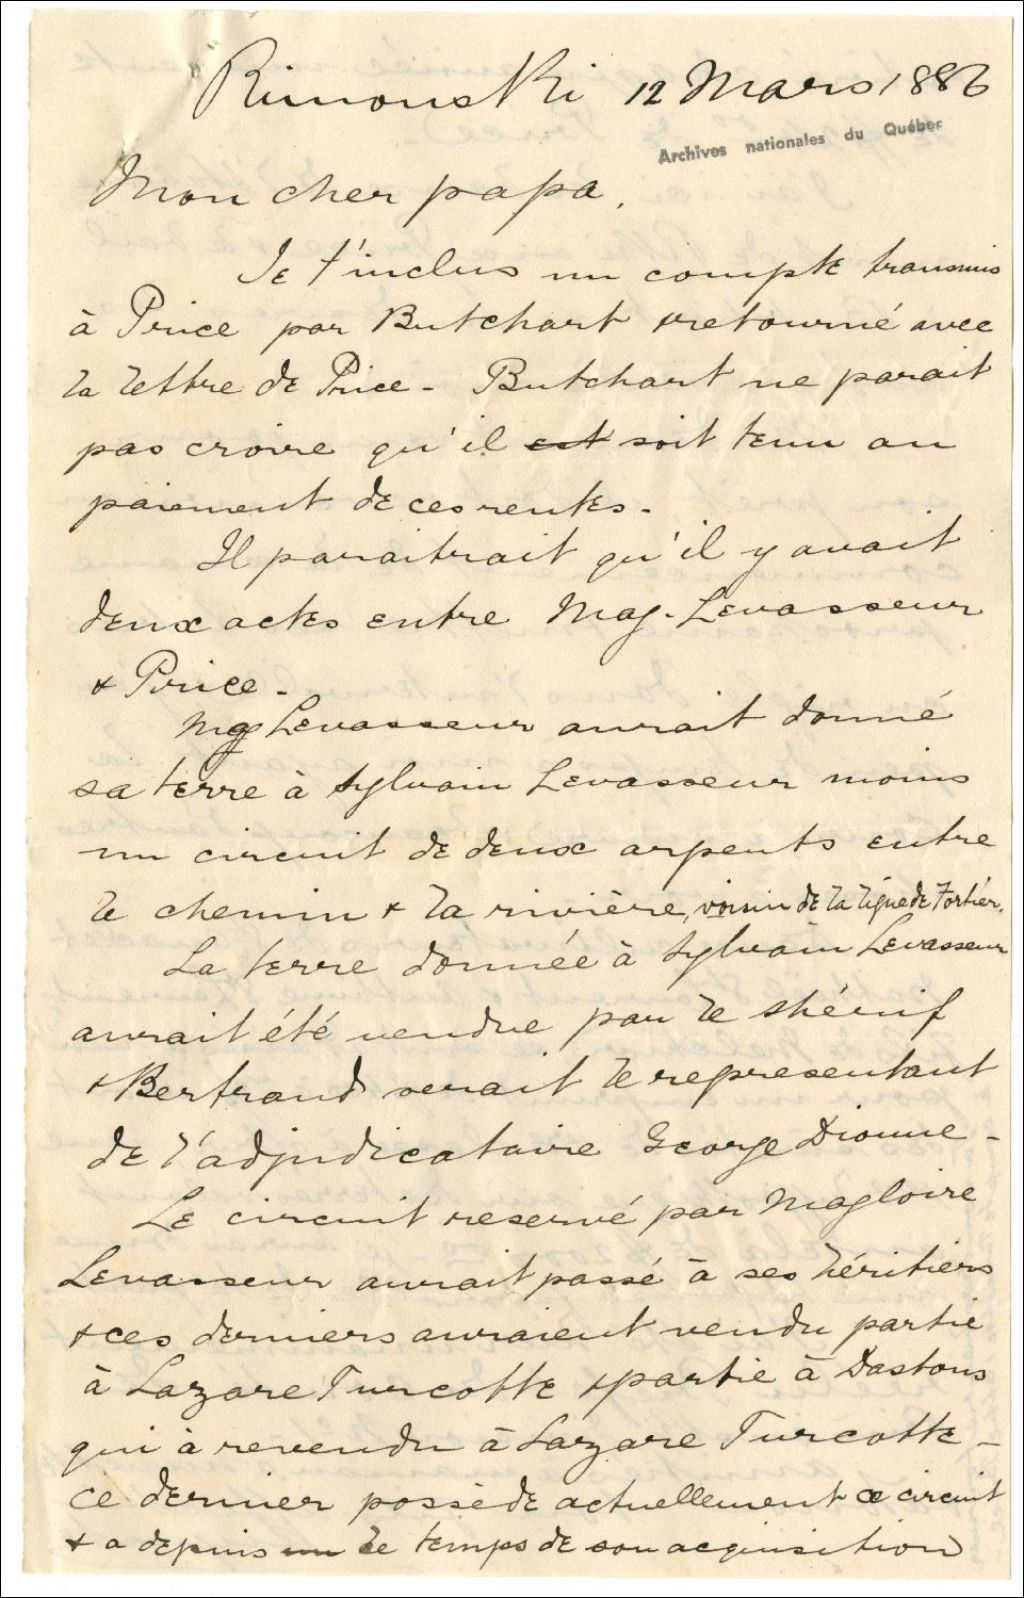 Rimouski 12 Mars 1886
Archives nationales du Québec
Mon cher papa,
Je t'inclus un compte transmis
à Price par Butchart & retourné avec
la lettre de Price - Butchart ne parait
pas croire qu'il est soit tenu au
paiement de ces rentes.
Il paraitrait qu'il y avait
deux actes entre Mag. Levasseur
& Price -
Mag Levasseur aurait donné
sa terre à Sylvain Levasseur moins
un circuit de deux arpents entre
le chemin & la rivière, voisin de la ligne de Fortier.
La terre donnée à Sylvain Levasseur
aurait été vendue par le shérif
& Bertrand serait le representant
de l'adjudicataire George Dionne -
Le circuit reservé par Magloire
Levasseur aurait passé à ses héritiers
& ces derniers auraient vendu partie
à Lazare Turcotte & partie à Dastous
qui à revendu à Lazare Turcotte -
ce dernier possède actuellement ce circuit
& a depuis un le temps de son acquisition